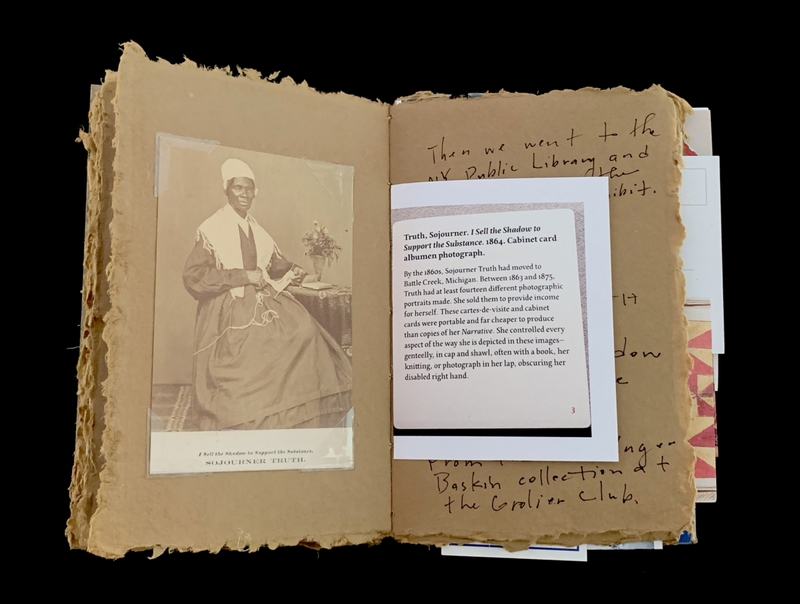 I Sell the Shadow to Support the Substance.
SOJOURNER TRUTH.
Then we went to the
NY Public Library and
the
ibit.
Truth, Sojourner. I Sell the Shadow to
Support the Substance. 1864. Cabinet card
albumen photograph.
By the 1860s, Sojourner Truth had moved to
Battle Creek, Michigan. Between 1863 and 1875,
Truth had at least fourteen different photographic
portraits made. She sold them to provide income
for herself. These cartes-de-visite and cabinet
cards were portable and far cheaper to produce
than copies of her Narrative. She controlled every
aspect of the way she is depicted in these images—
genteelly, in cap and shawl, often with a book, her
knitting, or photograph in her lap, obscuring her
disabled right hand.
3
dow
e
From
Baskin collection at
the Grolier Club.